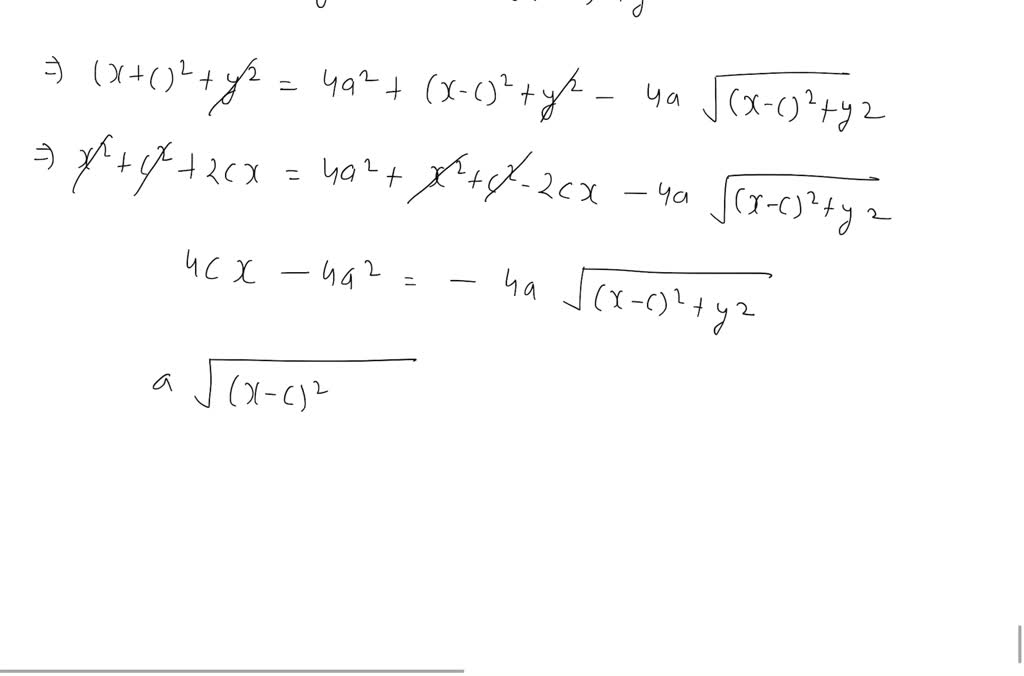 ⇒ (x+c)² + y² = 4a² + (x-c)² + y² - 4a √((x-c)² + y²)
⇒ x² + c² + 2cx = 4a² + x² + c² - 2cx - 4a √((x-c)² + y²)
4cx - 4a² = - 4a √((x-c)² + y²)
a √((x-c)²